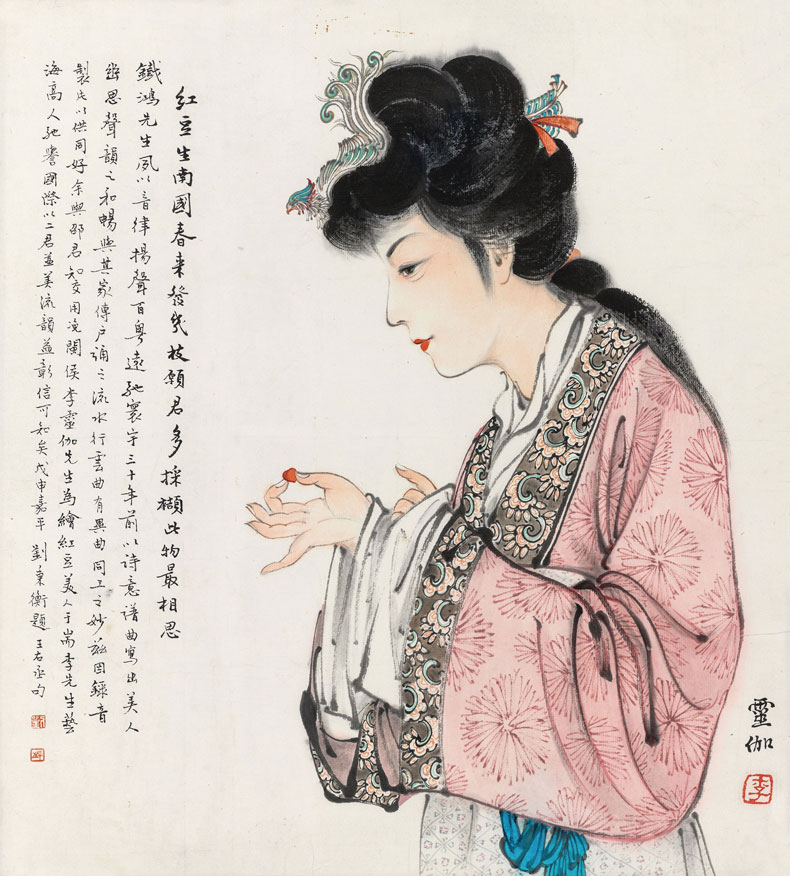 紅豆生南國春来發幾枝願君多採擷此物最相思
鐵鴻先生夙以音律揚聲百粵遠馳寰宇三十年前以詩意譜曲寫出美人
幽思聲韻之和暢與其家傳户誦之流水行雲曲有異曲同工之妙茲因錄音
製片以供同好余與邵君知交用浼閩侯李靈伽先生為繪紅豆美人于耑李先生藝
海高人馳譽國際以二君並美流韻益彰信可知矣戊申嘉平 劉秉衡題 王右丞句
靈伽
李